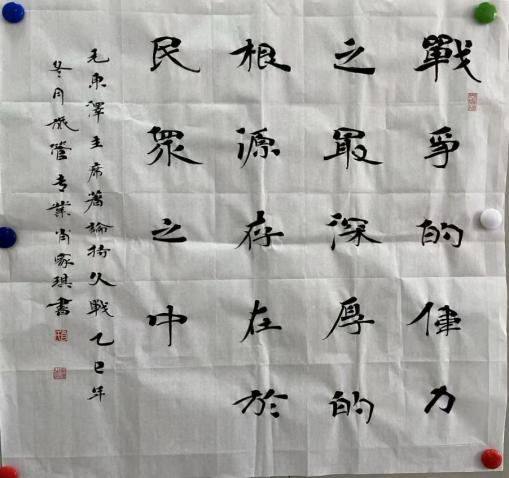 戰爭的偉力
之最深厚的
根源存在於
民眾之中
毛東澤主席著論持久戰乙巳年
冬月旅管专業肖家琪書